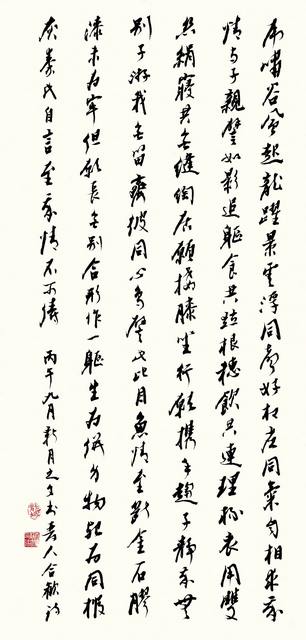 虎嘯谷風起龍躍景雲浮同聲好相應同氣自相求我
情與子親譬如影追軀食共並根穗飲共連理杯衣用雙
絲絹寢共無縫裯居願接膝坐行願攜手趨子靜我無
別子游我無留齊彼同心鳥譬此比目魚情至斷金石膠
漆未為牢但願長無別合形作一軀生為併身物死為同棺
灰秦氏自言至我情不可儔 丙午九月新月之夕書晉人合歡詩